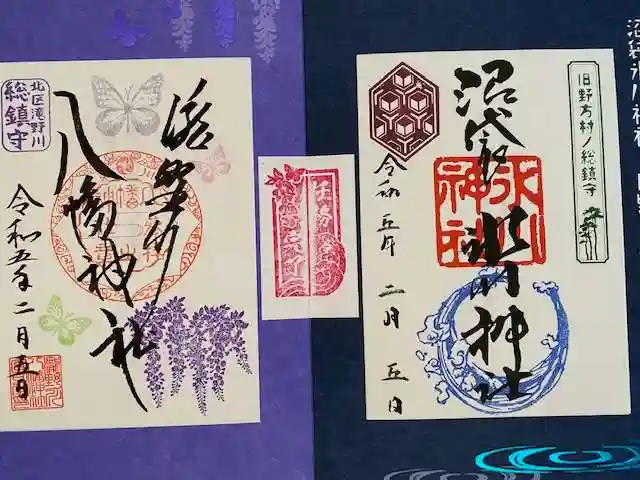 北区滝野川
総鎮守
滝野川
八幡神社
令和五年二月五日
任務完了
旧野方村ノ総鎮守
沼袋氷川神社
氷川
神社
令和五年 二月 五日